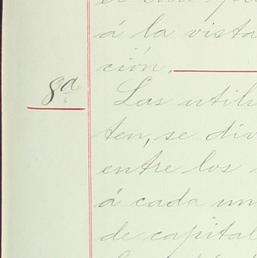 á la vista
ción.
8ª
Las utili
ten, se div
entre los
á cada un
de capital